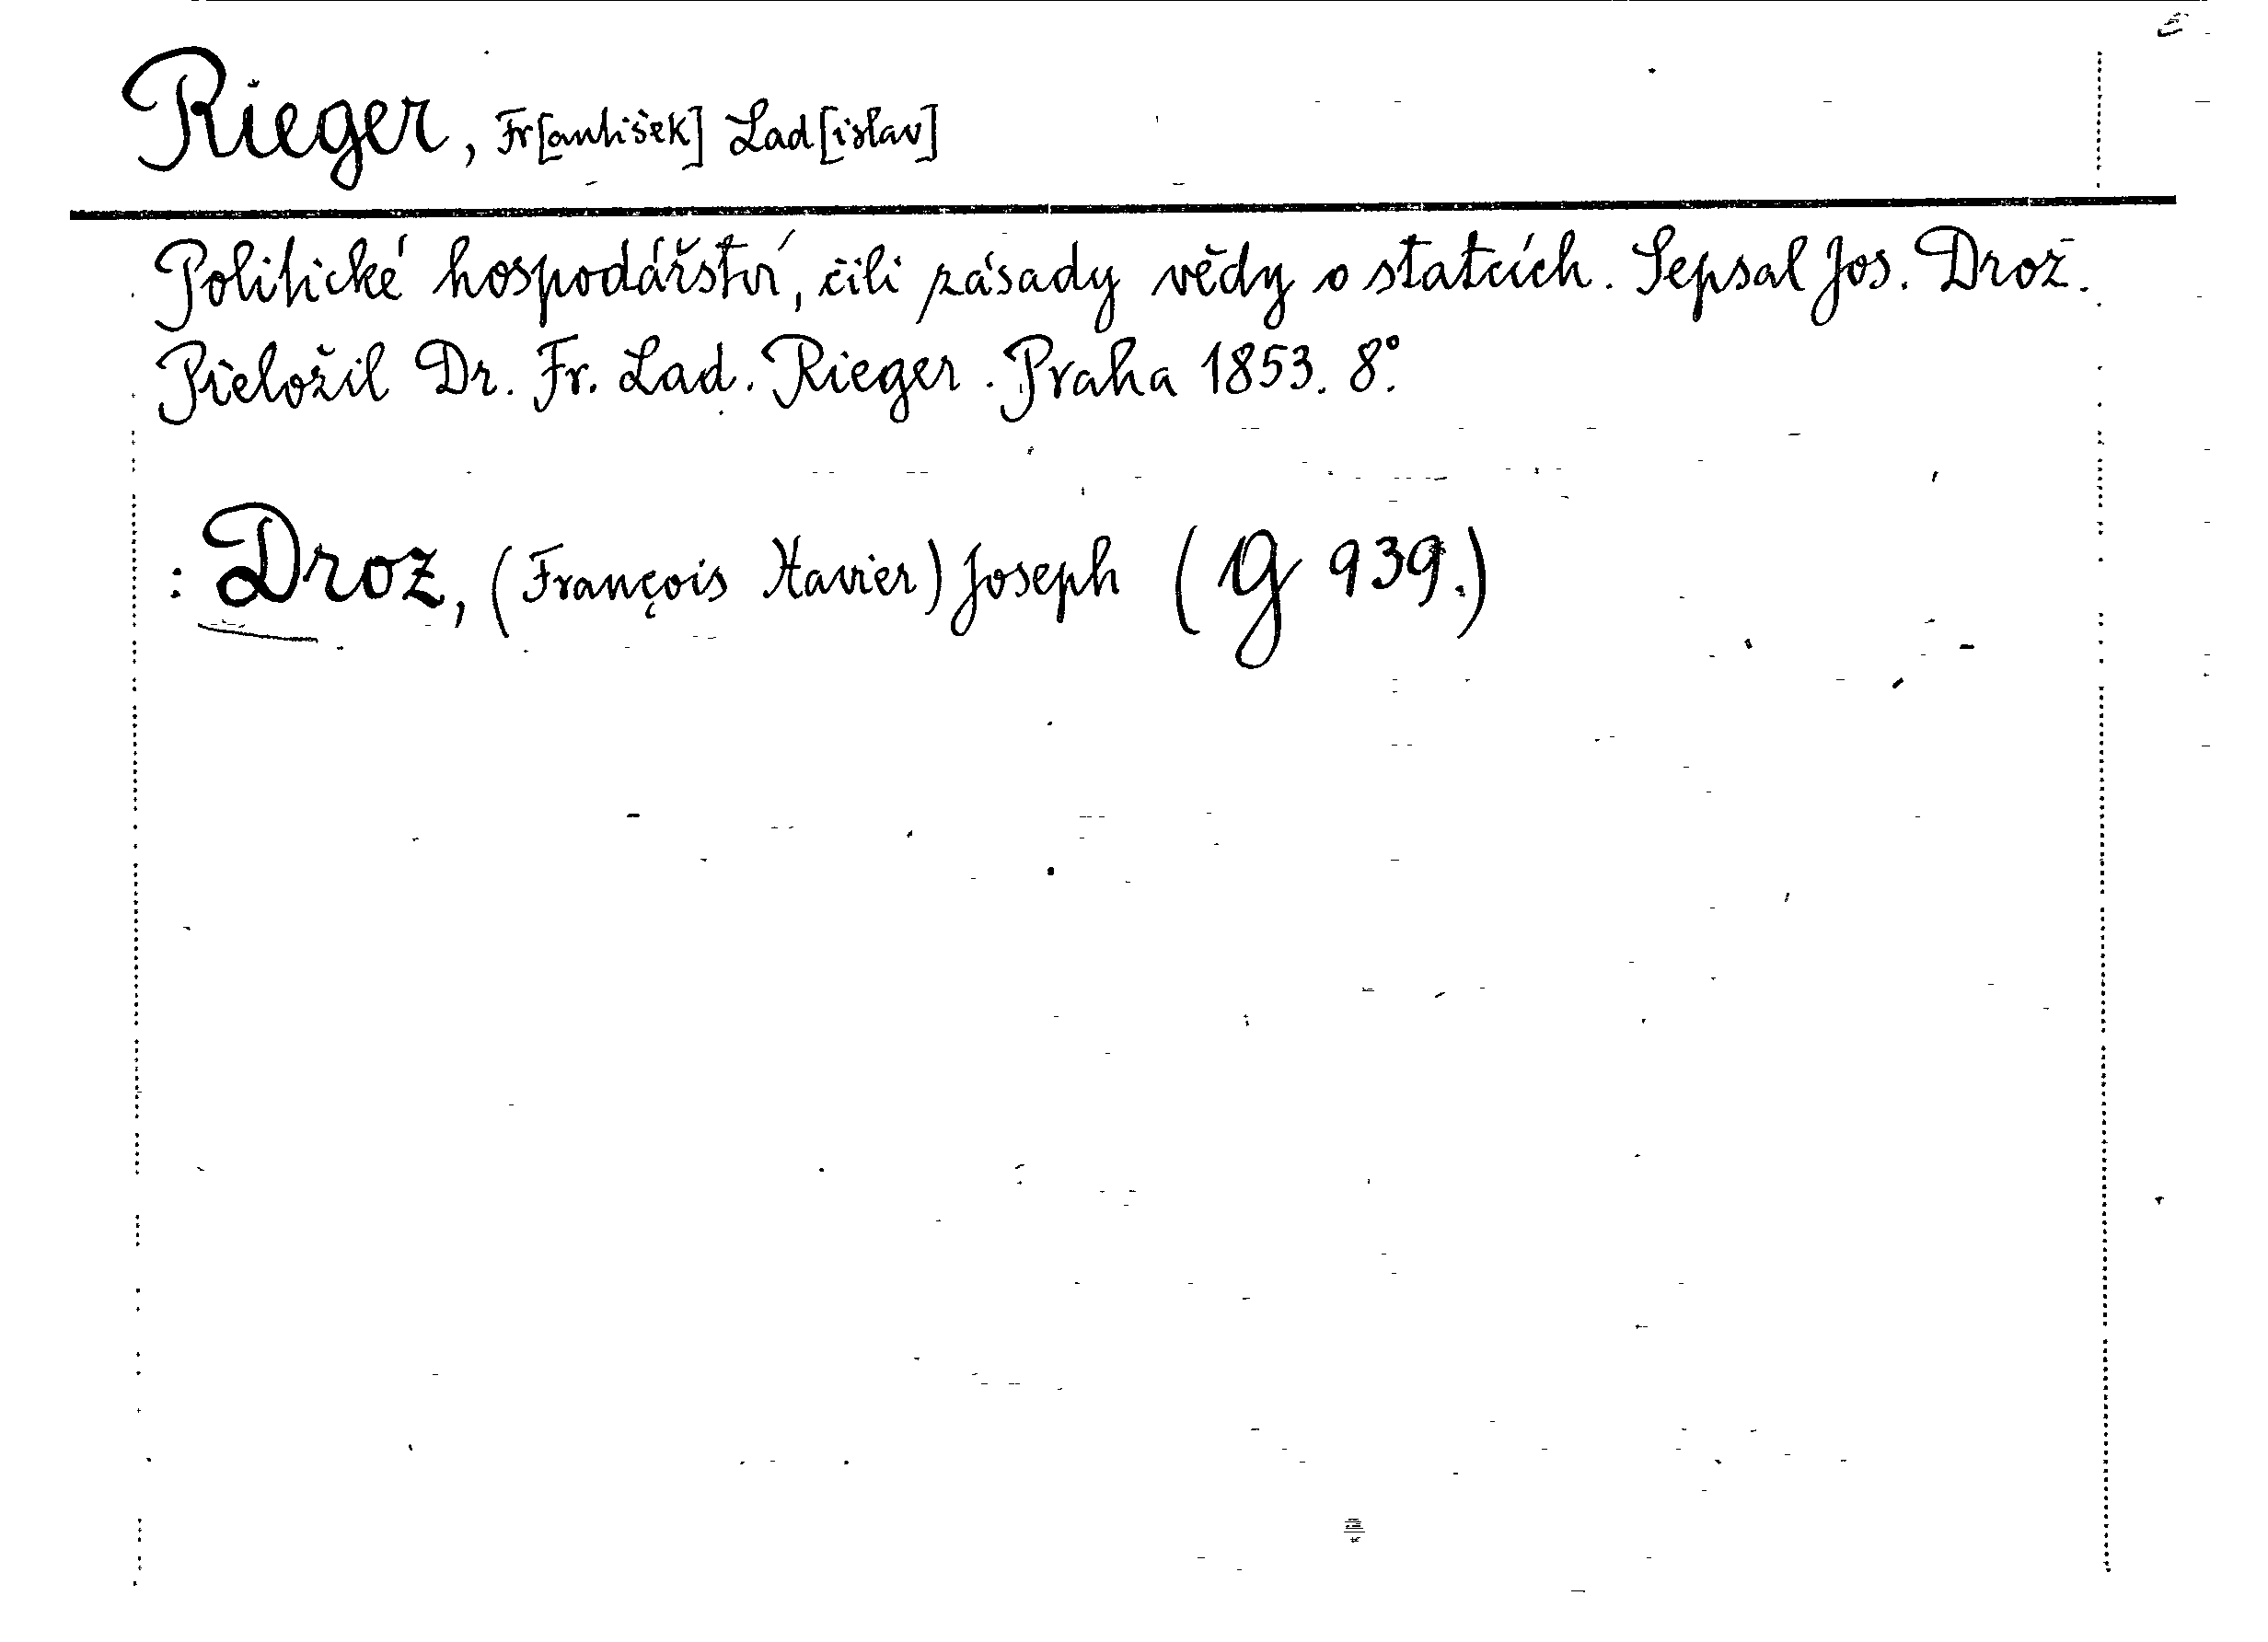 Rieger, Fr[antišek] Lad[islav]
Politické hospodářství, čili zásady vědy o statcích. Sepsal Jos. Droz.
Přeložil Dr. Fr. Lad. Rieger. Praha 1853. 8°.
: Droz, (François Xavier) Joseph (G 939.)